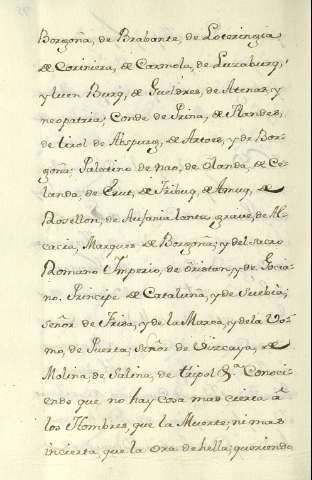 Borgoña, de Brabante, de Lotoringia
de Coriniera, de Carmola, de Luzaburg,
y luen Burg, de Gueldres, de Atenas, y
neopatria; Conde de Prina, de Flandes,
de tirol de Abspurg, de Artoes, y de Bor-
goña; Palatino de nao, de Olanda, de Ce-
landa, de Eeut, de Fribug, de Amug, de
Rosellon, de Aufania lantu, graue, de Al-
cacia, Marques de Borgoña; y del sacro
Romano Imperio, de Oristan, y de Gocia-
no. Principe de Cataluña, y de Suebia;
señor de Frisa, y de la Marca, y de la
mo, de Puerta; Señor de Vizcaya, de
Molina, de Salina, de tripol &ª Conoci-
endo que no hay Cosa mas cierta à
los Hombres, que la Muerte; ni mas
incierta, que la Ora de hella; queriendo